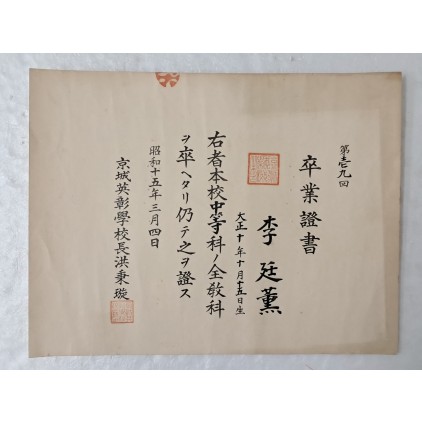 第壱九回
卒業證書
李廷薫
大正十年十月十五日生
右者本校中等科ノ全敎科
ヲ卒ヘタリ仍テ之ヲ證ス
昭和十五年三月四日
京城英彰學校長洪秉璇